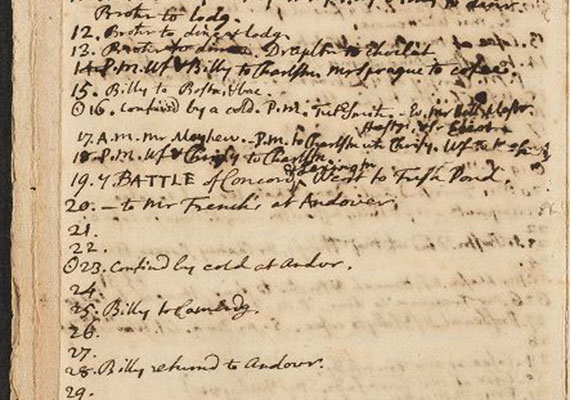 Brothr to lodg.
12. Brothr to dine & lodg.
13. Brothr to dine. Draptr to Chocolat
14. P.M. Wf & Billy to Charlstn. Mr Sprague to coffee.
15. Billy to Bostn. & bac.
☉16. Confined by a cold. P.M.
17. A.M. Mr Mayhew. P.M. to Charlstn with Chrisy.
18. P.M. Wf & Chrisy to Charlstn.
19. BATTLE of Concord & Lexington Went to Fresh Pond.
20. — to Mr French's at Andover
21.
22.
☉23. Confined by cold at Andor.
24.
25. Billy to Cambrdg.
26.
27.
28. Billy returnd to Andover.
29.